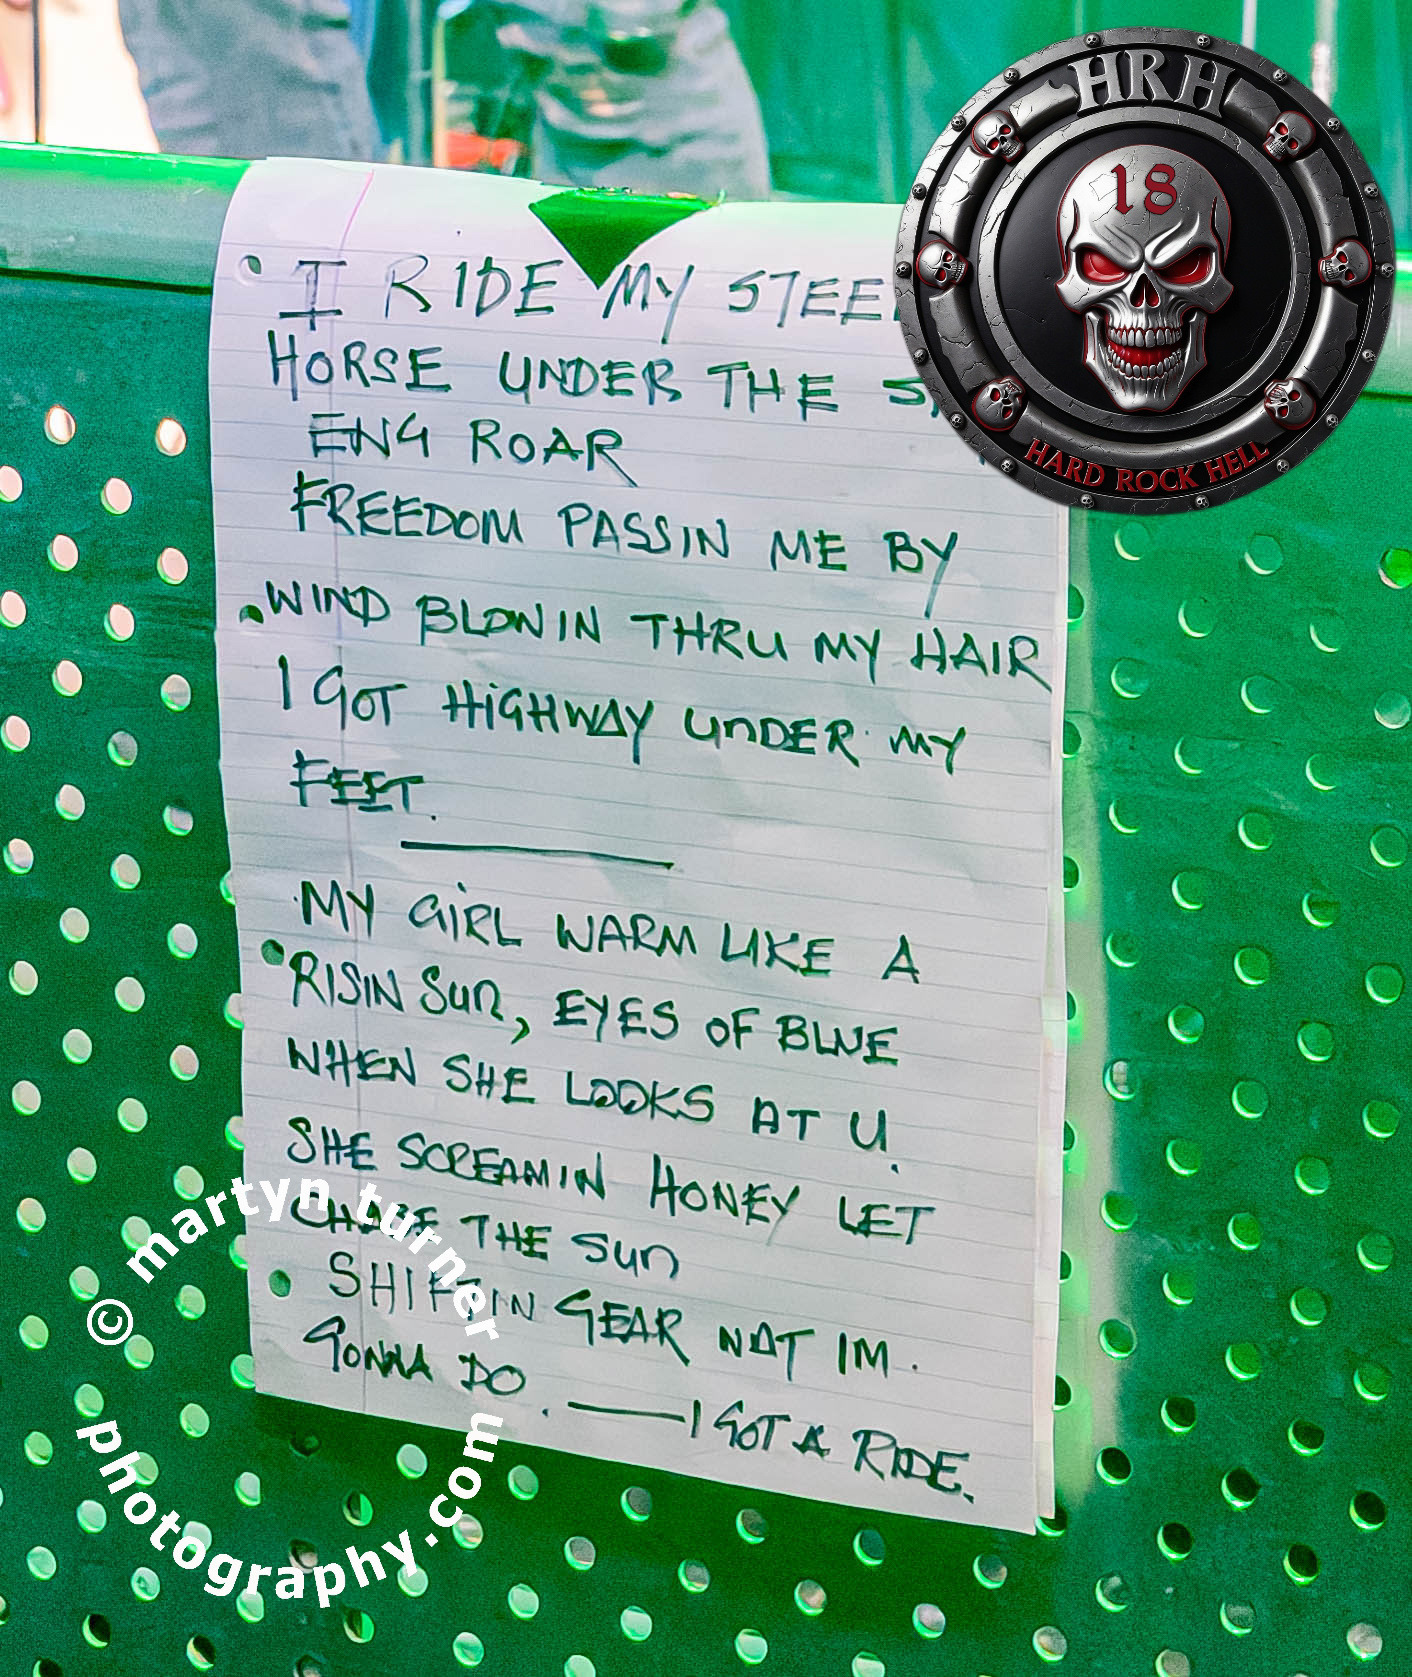 HRH
18
HARD ROCK HELL
I RIDE MY STEE
HORSE UNDER THE S
ENG ROAR
FREEDOM PASSIN ME BY
WIND BLOWIN THRU MY HAIR
I GOT HIGHWAY UNDER MY
FEET.
MY GIRL WARM LIKE A
RISIN SUN, EYES OF BLUE
WHEN SHE LOOKS AT U.
SHE SCREAMIN HONEY LET
CHASE THE SUN
SHIFTIN GEAR NOT IM.
GONNA DO. — I GOT A RIDE.
© martyn turner
photography.com